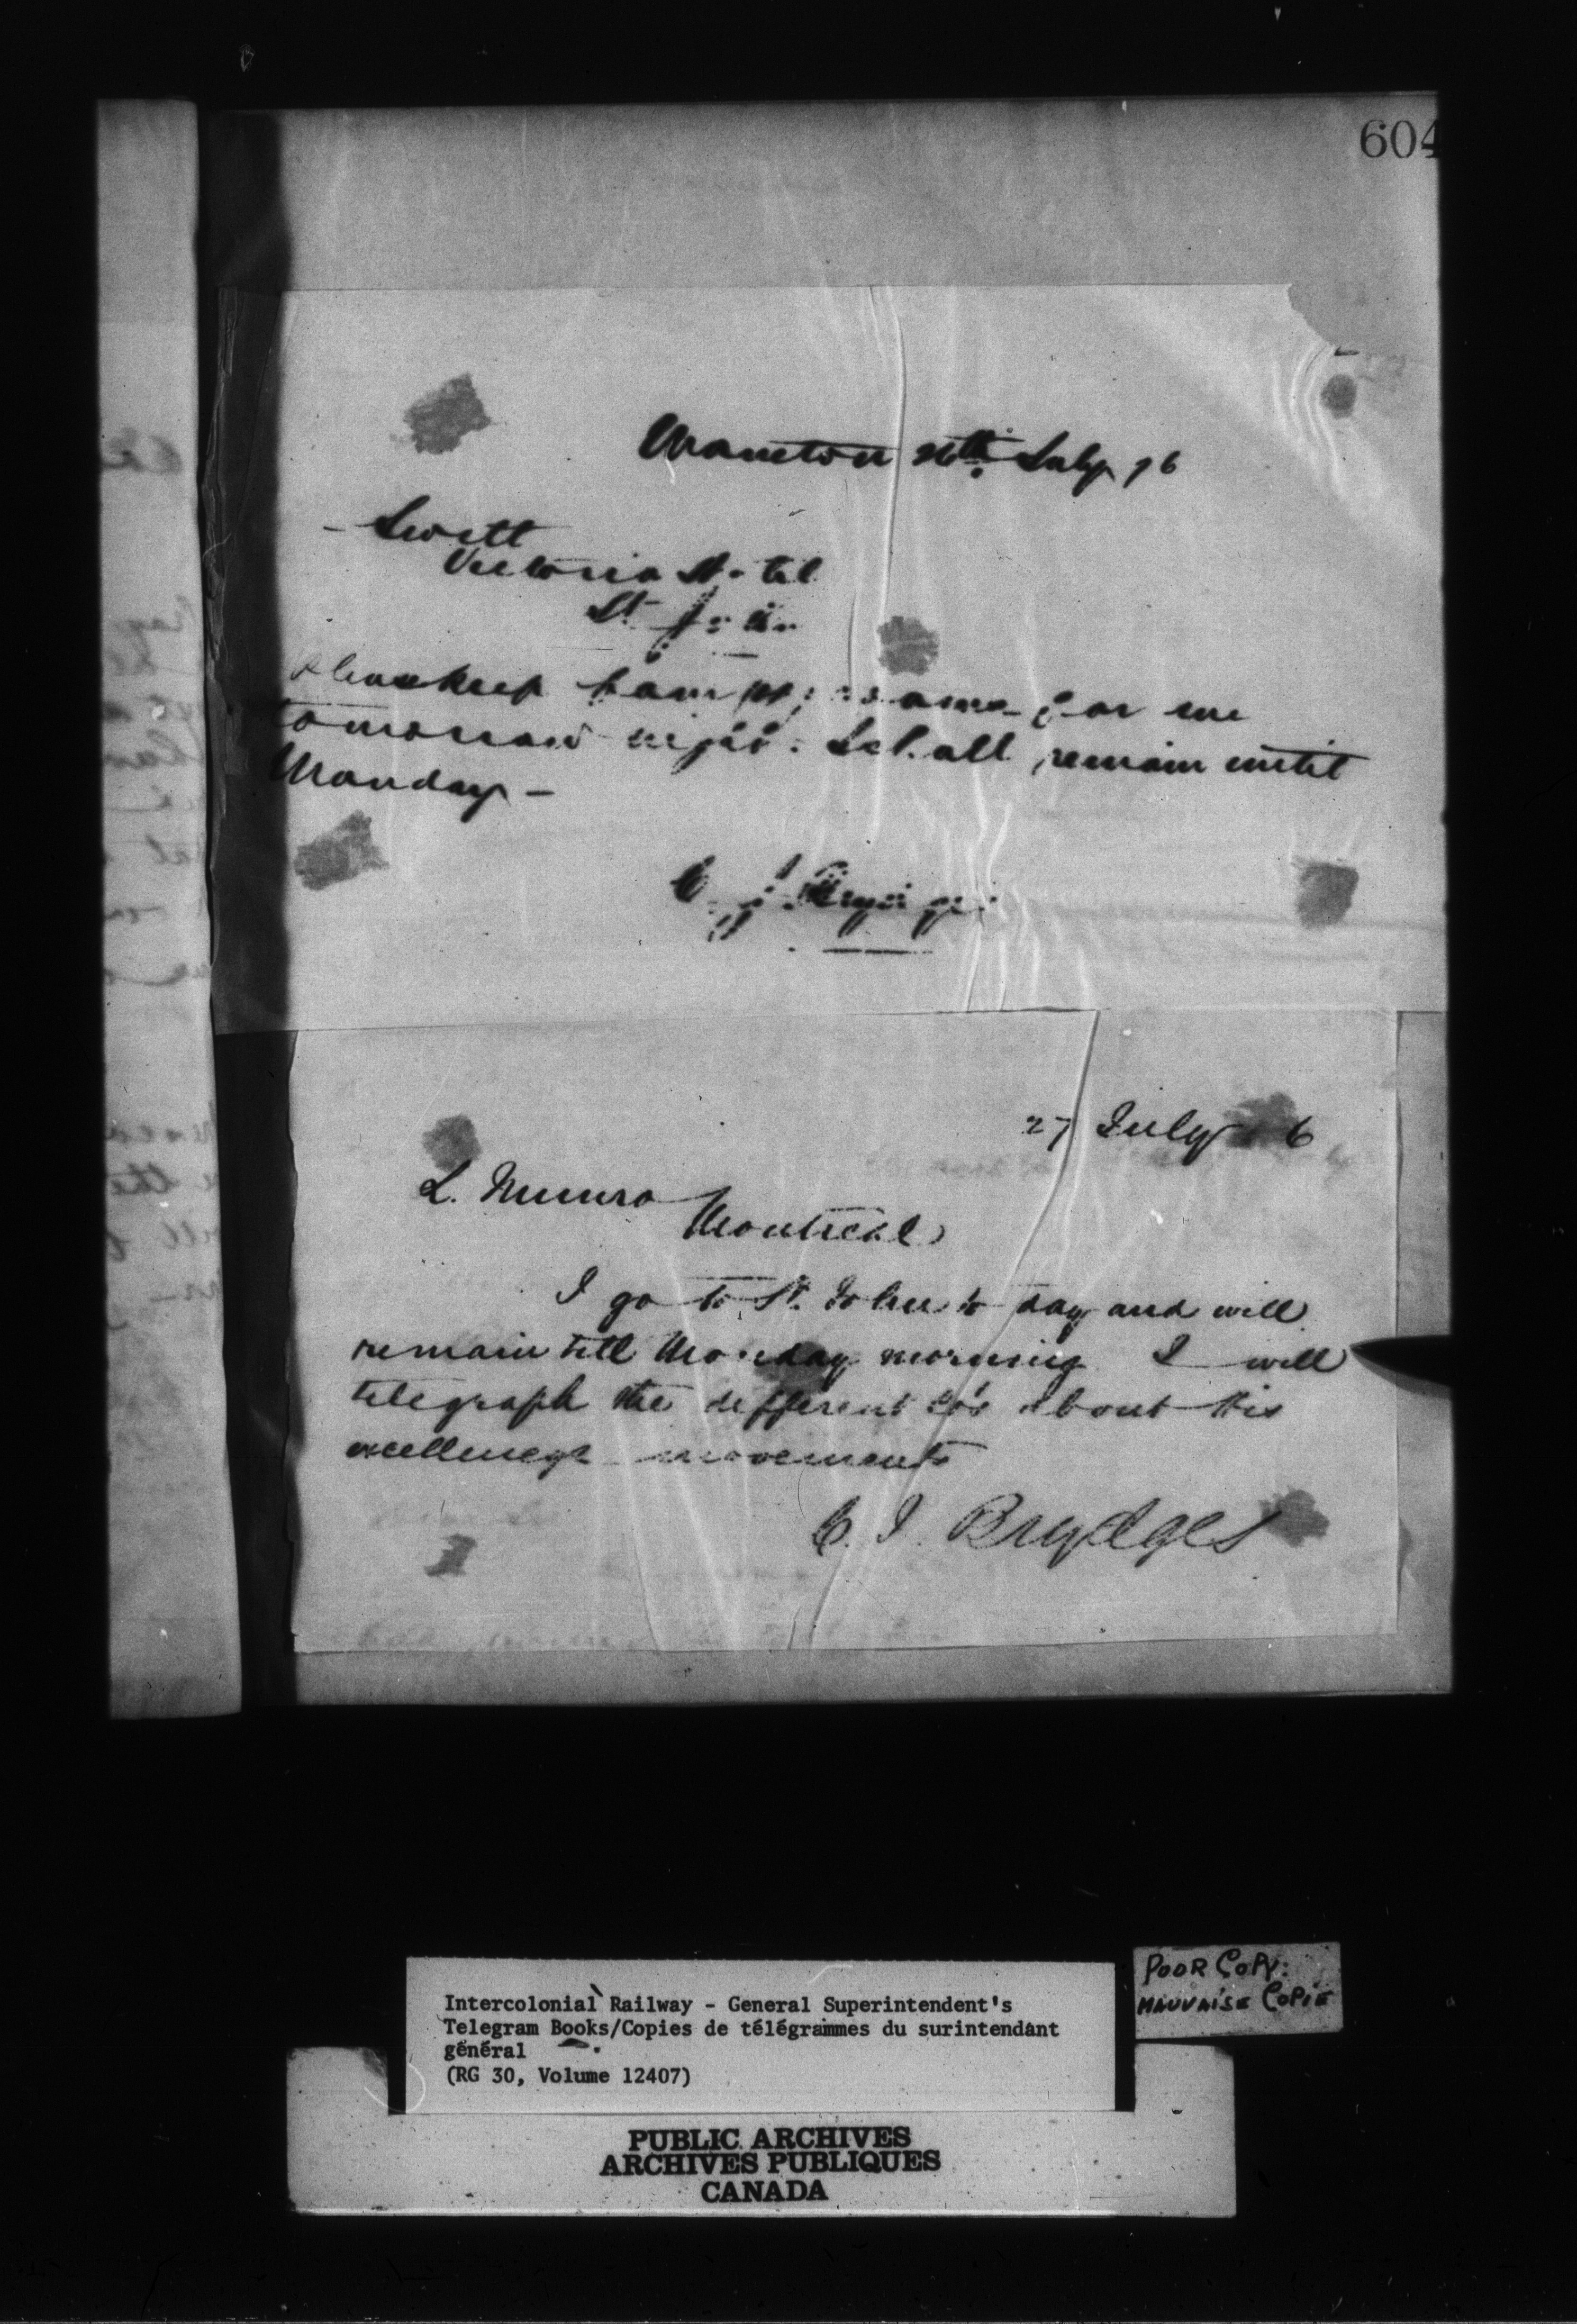 604
Moncton 26th July 76
Swett
Victoria Hotel
St John
Please keep same for me
tomorrow night. I shall remain until
Monday -
C J Brydges
27 July 6
L. Munro
Montreal
I go to St. John to day and will
remain till Monday morning I will
telegraph the different about His
excellencys movements
C. J. Brydges
POOR COPY:
MAUVAISE COPIE
Intercolonial Railway - General Superintendent's
Telegram Books/Copies de télégrammes du surintendant
général
(RG 30, Volume 12407)
PUBLIC ARCHIVES
ARCHIVES PUBLIQUES
CANADA